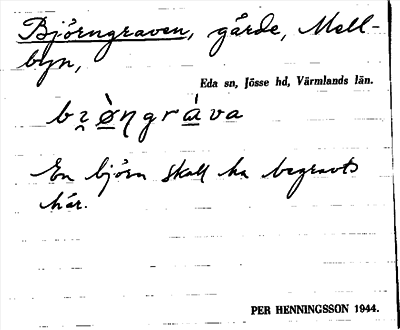 Björngraven, gärde, Mell-
byn,
Eda sn, Jösse hd, Värmlands län.
En björn skall ha begravts
här.
PER HENNINGSSON 1944.